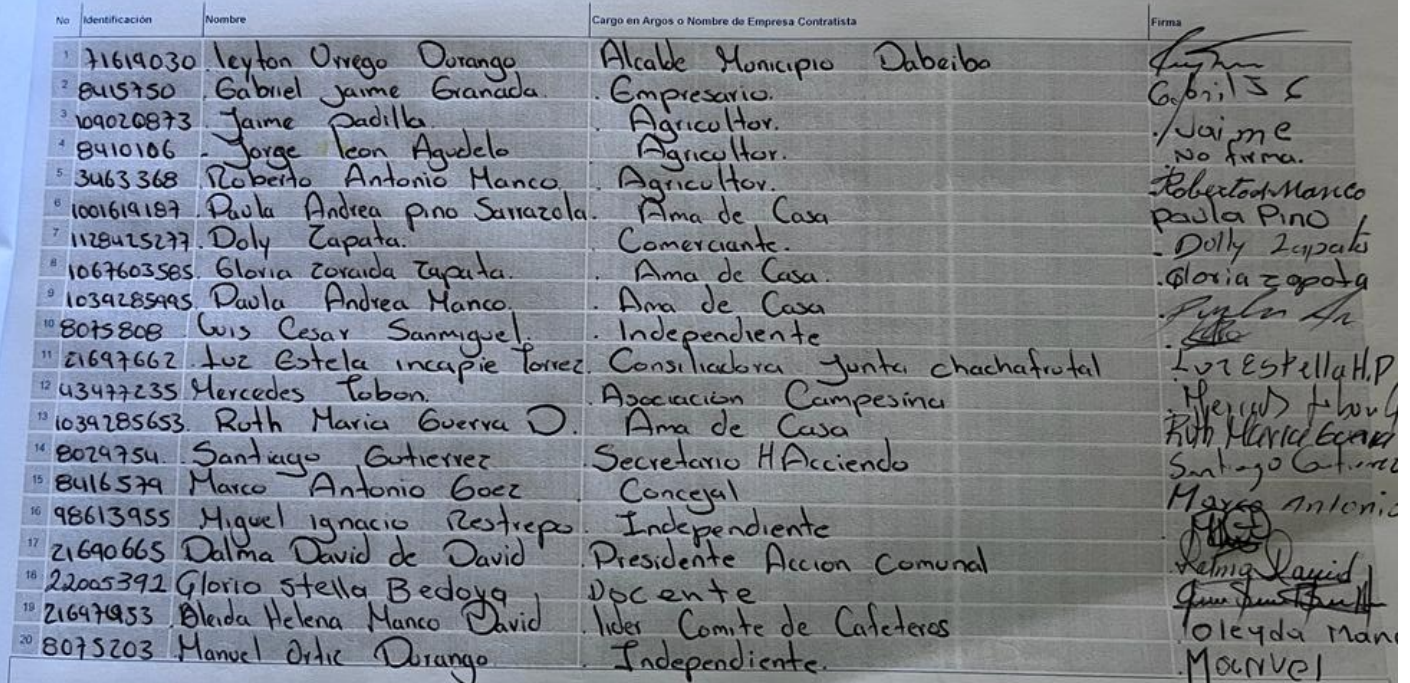 No Identificación Nombre Cargo en Argos o Nombre de Empresa Contratista Firma
1 71619030 leyton Orrego Durango Alcalde Municipio Dabeiba
2 8415750 Gabriel Jaime Granada. Empresario. Gabril J G
3 109020873 Jaime Padilla Agricultor. Jaime
4 8410106 Jorge leon Agudelo Agricultor. No firma.
5 3463368 Roberto Antonio Manco. Agricultor. Roberto A Manco
6 1001619187 Paula Andrea pino Sarrazola. Ama de Casa paula Pino
7 1128425277. Doly Zapata. Comerciante. Dolly Zapata
8 1067603585. Gloria Zoraida Zapata. Ama de Casa. Gloria zapata
9 1039285995. Paula Andrea Manco. Ama de Casa
10 8075808 Luis Cesar Sanmiguel. Independiente
11 21697662 Luz Estela incapie Torrez. Consiliadora Junta chachafrutal Luz EStella H.P
12 43477235 Mercedes Tobon. Asociacion Campesina
13 1039285653. Ruth Maria Guerra D. Ama de Casa Ruth Maria Guerra
14 8029754. Santiago Gutierrez Secretario HAcciendo Santiago Gutierrez
15 8416579 Marco Antonio Goez Concejal Marco Antonio
16 98613955 Miguel ignacio Restrepo. Independiente
17 21690665 Dalma David de David Presidente Accion Comunal Dalma David
18 22005392 Gloria Stella Bedoya Docente
19 Bleida Helena Manco David lider Comite de Cafeteros oleyda Man
20 8075203 Manuel Ortiz Durango Independiente. Manuel